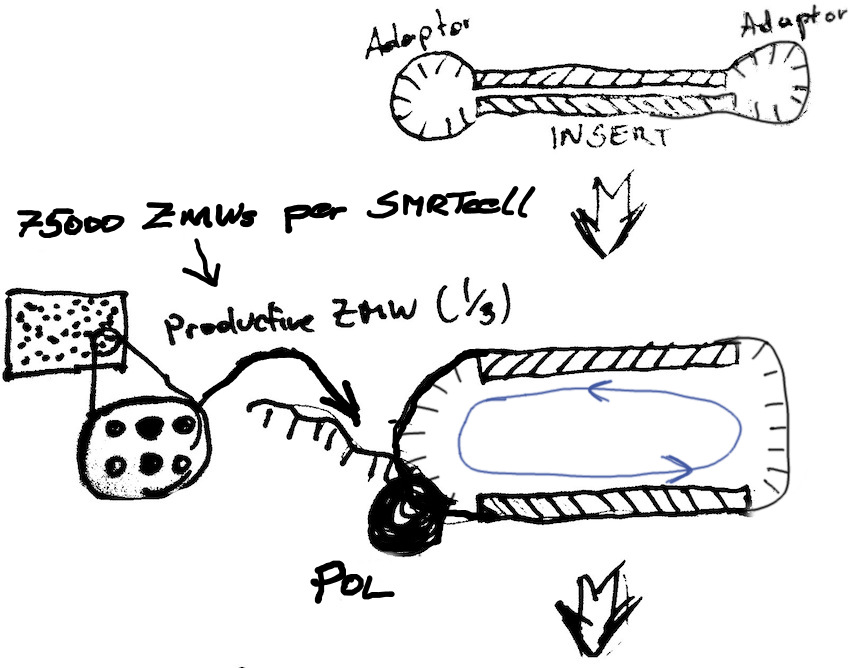 Adaptor
Adaptor
INSERT
75000 ZMWs per SMRTcell
Productive ZMW (1/3)
POL